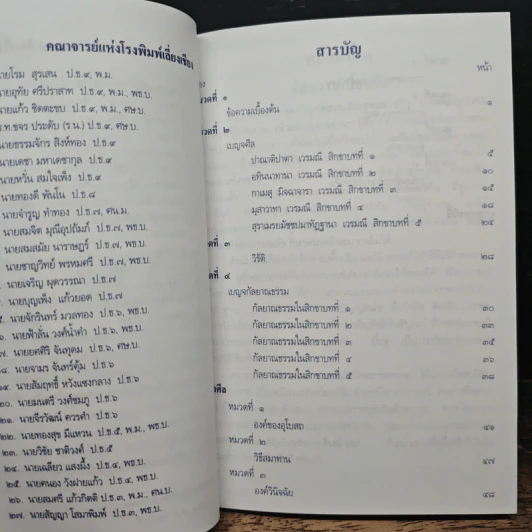 คณาจารย์แห่งโรงพิมพ์เลี่ยงเชียง
นายโรม สุรเสน ป.ธ.๙, พ.ม.
นายอุทัย ศรีปราสาท ป.ธ.๙, พ.ม., พธ.บ.
นายแก้ว ชิดตะขบ ป.ธ.๙, พ.ม., ศษ.บ.
ร.ท.ขจร ประดับ (ร.น.) ป.ธ.๙, ศษ.บ.
นายธรรมจักร สิงห์ทอง ป.ธ.๙
นายเดชา มหาเดชากุล ป.ธ.๙
นายหวั่น สมใจเพ็ง ป.ธ.๙
นายทองดี พันโน ป.ธ.๘
นายจำรูญ ทำทอง ป.ธ.๗, ศน.ม.
นายสมจิต มุณีอุปถัมภ์ ป.ธ.๗, พธ.บ.
นายสมสมัย นาราษฎร์ ป.ธ.๗, พธ.บ.
นายชาญวิทย์ พรหมศรี ป.ธ.๗, พธ.บ.
นายเจริญ ผุดวรรณา ป.ธ.๗
นายบุญเพ็ง แก้วยอด ป.ธ.๗
๕. นายจักรินทร์ มวลทอง ป.ธ.๖, พธ.บ.
๖. นายฟ้าลั่น วงศ์น้ำคำ ป.ธ.๖, พธ.บ.
๗. นายยศศิริ จันทุดม ป.ธ.๖, ศษ.บ.
๘. นายจามร จันทร์คุ้ม ป.ธ.๖
๑๙. นายสัมฤทธิ์ หวังแซงกลาง ป.ธ.๖
๒๐. นายมนตรี วงศ์ชมภู ป.ธ.๖
๒๑. นายจีรวัฒน์ ควรคำ ป.ธ.๖
๒๒. นายทองสุข มีแหวน ป.ธ.๕, พ.ม., พธ.บ.
๒๓. นายวิชัย ชาติวงศ์ ป.ธ.๕
๒๔. นายเฉลียว แสงผึ้ง ป.ธ.๔, พธ.บ.
๒๕. นายคนอง วังฝายแก้ว ป.ธ.๔, พธ.บ.
๒๖. นายสมศรี แก้วกิตติ ป.ธ.๓, พ.ม., ศน.บ.
๒๗. นายสัญญา โสมาพิมพ์ ป.ธ.๓, พธ.บ.
สารบัญ
เรื่อง หน้า
หมวดที่ ๑
ข้อความเบื้องต้น ๑
หมวดที่ ๒
เบญจศีล
ปาณาติปาตา เวรมณี สิกขาบทที่ ๑ ๕
อทินนาทานา เวรมณี สิกขาบทที่ ๒ ๑๐
กาเมสุ มิจฉาจารา เวรมณี สิกขาบทที่ ๓ ๑๕
มุสาวาทา เวรมณี สิกขาบทที่ ๔ ๑๘
สุราเมรยมัชชปมาทัฏฐานา เวรมณี สิกขาบทที่ ๕ ๒๔
หมวดที่ ๓
วิรัติ ๒๘
หมวดที่ ๔
เบญจกัลยาณธรรม
กัลยาณธรรมในสิกขาบทที่ ๑ ๓๐
กัลยาณธรรมในสิกขาบทที่ ๒ ๓๓
กัลยาณธรรมในสิกขาบทที่ ๓ ๓๕
กัลยาณธรรมในสิกขาบทที่ ๔ ๓๖
กัลยาณธรรมในสิกขาบทที่ ๕ ๓๘
หมวดที่ ๑
องค์ของอุโบสถ ๔๑
หมวดที่ ๒
วิธีสมาทาน ๔๗
หมวดที่ ๓
องค์วินิจฉัย ๔๘